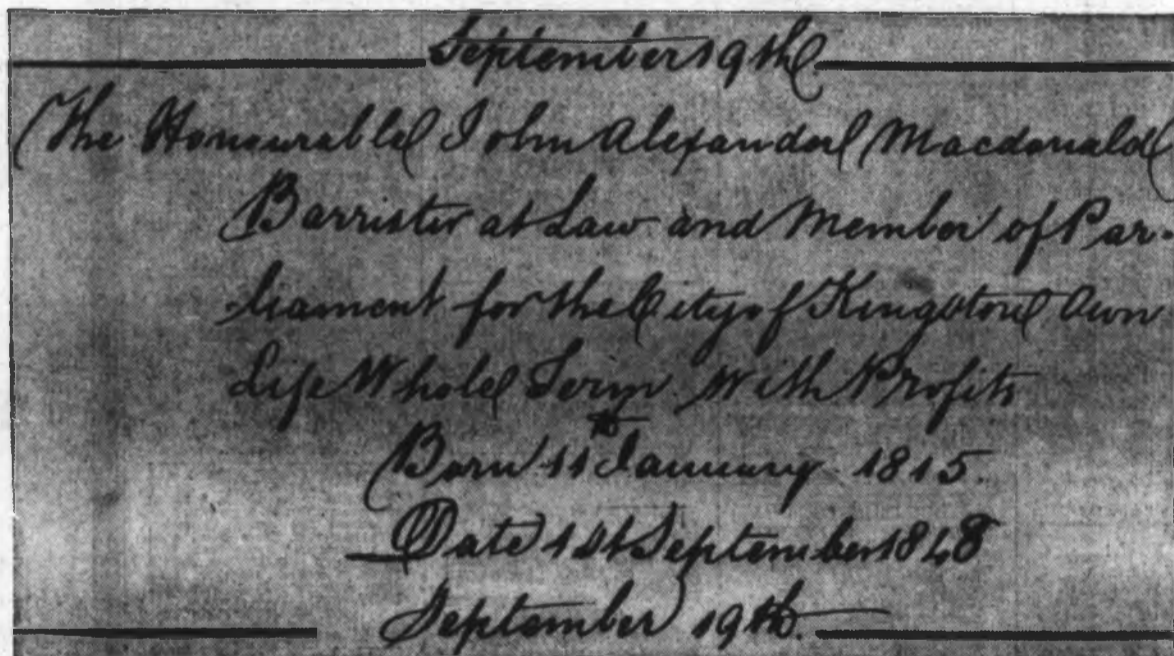 September 19th
The Honourable John Alexander Macdonald
Barrister at Law and Member of Par-
liament for the City of Kingston Own
Life Whole Term With Profits
Born 11th January 1815.
Date 1st September 1848
September 19th.